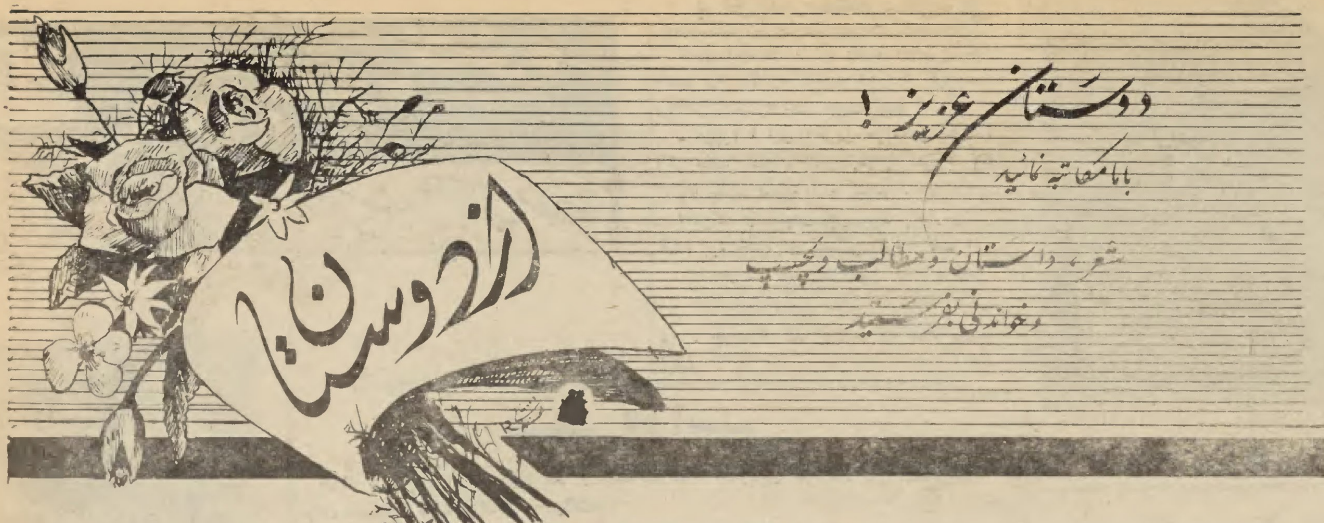 دوستان عزیز !
با ما مکاتبه نمائید
شعر ، داستان و مطالب دلچسپ
و خواندنی بفرستید
از دوستان